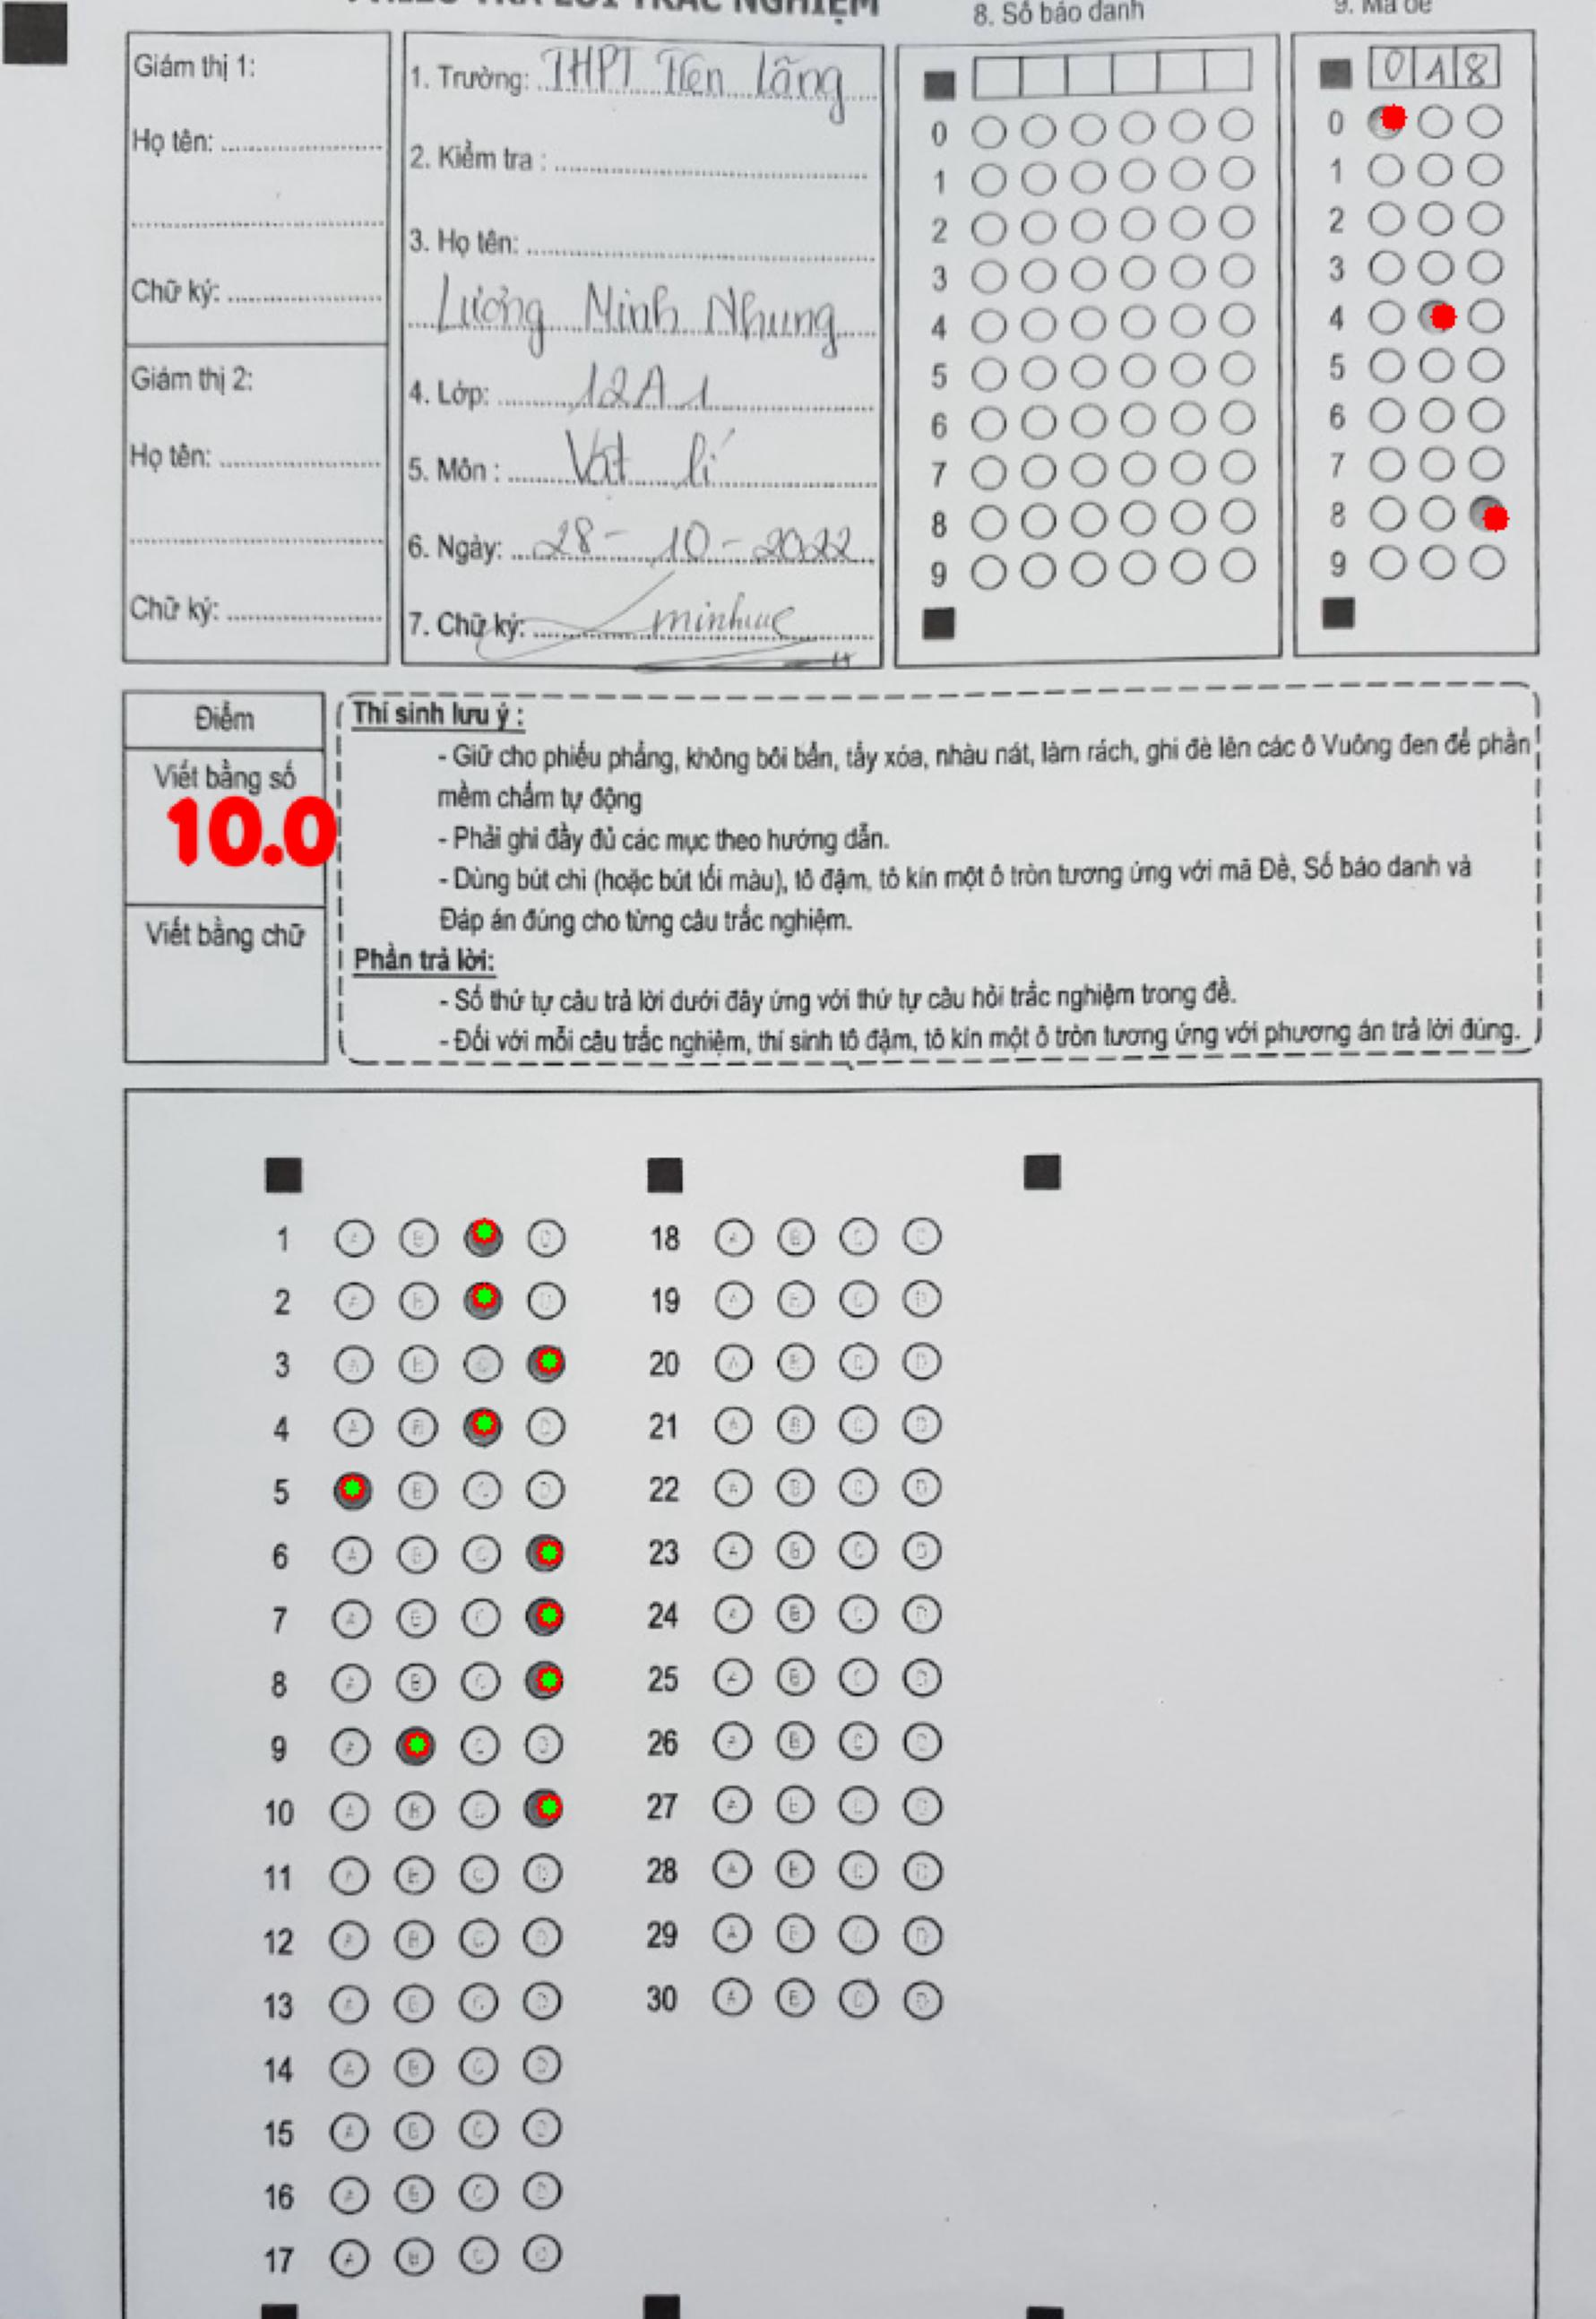 PHIẾU TRẢ LỜI TRẮC NGHIỆM
Giám thị 1:
Họ tên: ..................
Chữ ký: ..................
Giám thị 2:
Họ tên: ..................
Chữ ký: ..................
1. Trường: THPT Tiên Lãng
2. Kiểm tra : ..................
3. Họ tên: ..................
Lương Minh Nhung
4. Lớp: 12A1
5. Môn : Vật lí
6. Ngày: 28 - 10 - 2022
7. Chữ ký:
8. Số báo danh
0
1
2
3
4
5
6
7
8
9
9. Mã đề
0 1 8
0
1
2
3
4
5
6
7
8
9
Điểm
Viết bằng số
10.0
Viết bằng chữ
Thí sinh lưu ý :
- Giữ cho phiếu phẳng, không bôi bẩn, tẩy xóa, nhàu nát, làm rách, ghi đè lên các ô Vuông đen để phần
mềm chấm tự động
- Phải ghi đầy đủ các mục theo hướng dẫn.
- Dùng bút chì (hoặc bút tối màu), tô đậm, tô kín một ô tròn tương ứng với mã Đề, Số báo danh và
Đáp án đúng cho từng câu trắc nghiệm.
Phần trả lời:
- Số thứ tự câu trả lời dưới đây ứng với thứ tự câu hỏi trắc nghiệm trong đề.
- Đối với mỗi câu trắc nghiệm, thí sinh tô đậm, tô kín một ô tròn tương ứng với phương án trả lời đúng.
1 A B D
2 A B D
3 A B C
4 A B D
5 B C D
6 A B C
7 A B C
8 A B C
9 A C D
10 A B C
11 A B C D
12 A B C D
13 A B C D
14 A B C D
15 A B C D
16 A B C D
17 A B C D
18 A B C D
19 A B C D
20 A B C D
21 A B C D
22 A B C D
23 A B C D
24 A B C D
25 A B C D
26 A B C D
27 A B C D
28 A B C D
29 A B C D
30 A B C D